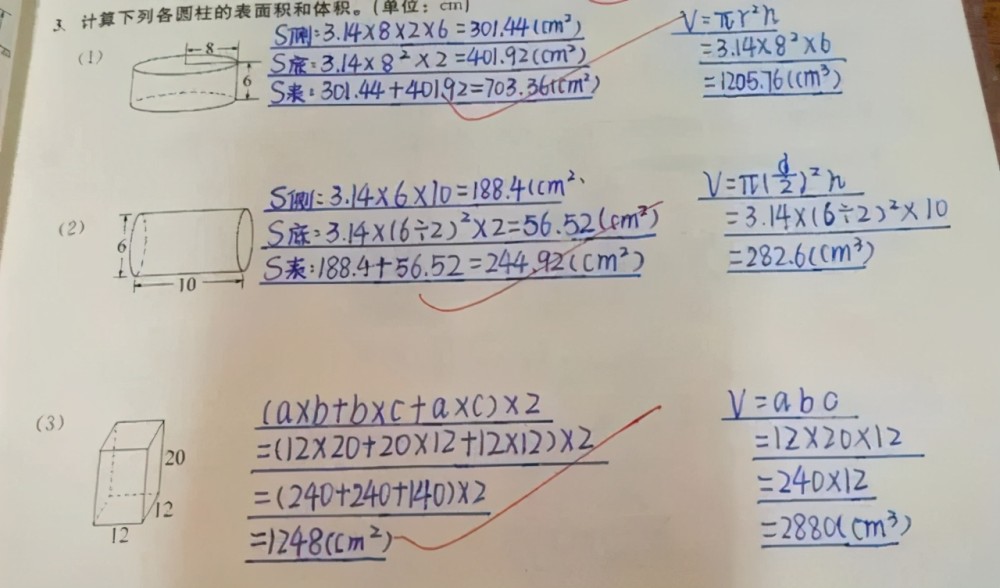 3. 计算下列各圆柱的表面积和体积。(单位：cm)
(1)
8
6
S侧:3.14×8×2×6=301.44(cm²)
S底:3.14×8²×2=401.92(cm²)
S表:301.44+401.92=703.36(cm²)
V=πr²h
=3.14×8²×6
=1205.76(cm³)
(2)
6
10
S侧:3.14×6×10=188.4(cm²
S底:3.14×(6÷2)²×2=56.52(cm²)
S表:188.4+56.52=244.92(cm²)
V=π(d/2)²h
=3.14×(6÷2)²×10
=282.6(cm³)
(3)
20
12
12
(a×b+b×c+a×c)×2
=(12×20+20×12+12×12)×2
=(240+240+140)×2
=1248(cm²)
V=abc
=12×20×12
=240×12
=2880(cm³)